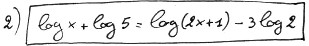 2) log x + log 5 = log (2x+1) - 3 log 2